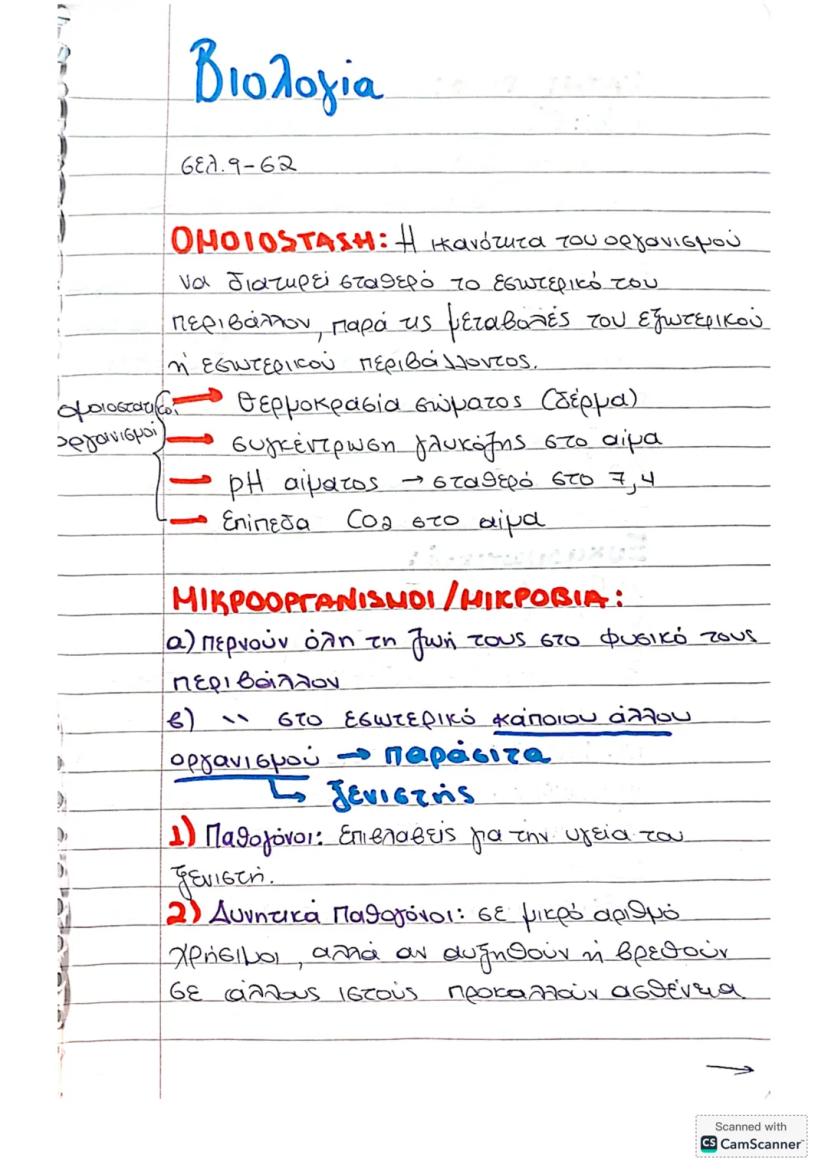 Βιολογία
σελ.9-62
ΟΜΟΙΟSTASH: Η ικανότητα του οργανισμού
να διατηρεί σταθερό το εσωτερικό του
περιβάλλον, παρά τις μεταβολές του εξωτερικού
ή εσωτερικού περιβάλλοντος.
ομοιοστατικοί οργανισμοί
→ θερμοκρασία σώματος (δέρμα)
→ συγκέντρωση γλυκόζης στο αίμα
→ pH αίματος → σταθερό στο 7,4
→ Επίπεδα CO2 στο αίμα
ΜΙΚΡΟΟΡΓΑΝΙSΜΟΙ/ΜΙΚΡΟΒΙΑ:
α) περνούν όλη τη ζωή τους στο φυσικό τους
περιβάλλον
β) '' στο εσωτερικό κάποιου άλλου
οργανισμού → παράσιτα
↳ ξενιστής
1) Παθογόνοι: Επιβλαβείς για την υγεία του
ξενιστή.
2) Δυνητικά Παθογόνοι: σε μικρό αριθμό
χρήσιμοι, αλλά αν αυξηθούν ή βρεθούν
σε άλλους ιστούς προκαλλούν ασθένεια
→
Scanned with
CS CamScanner